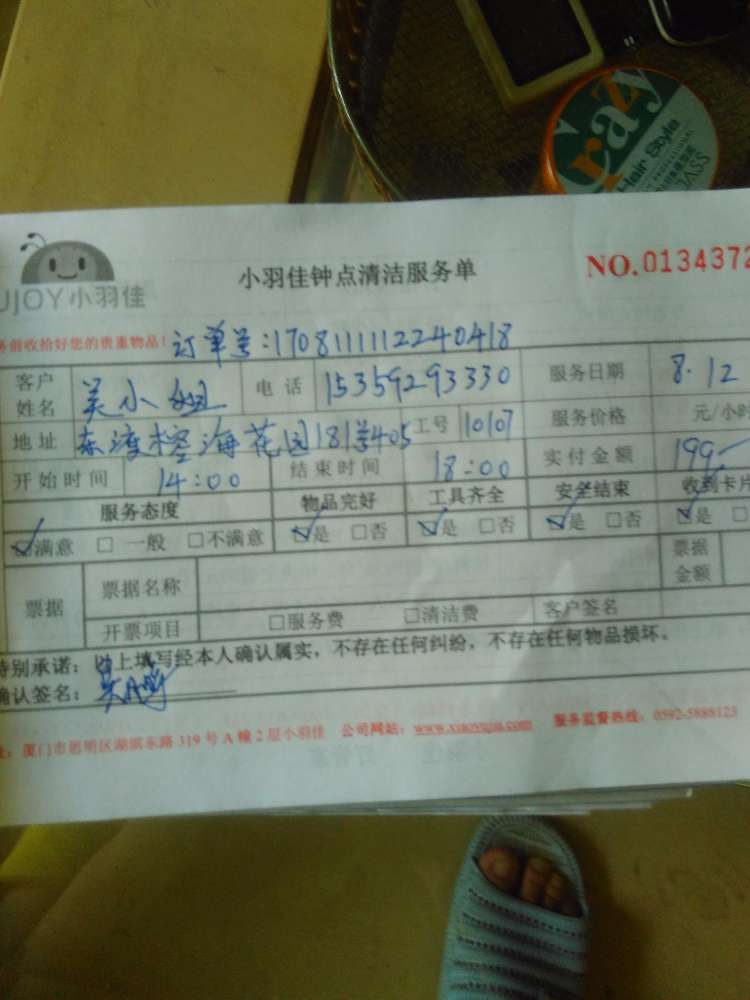 Crazy
Hair Style
UJOY小羽佳
小羽佳钟点清洁服务单
NO.0134372
务前收拾好您的贵重物品！订单号:17081111112240418
客户姓名 吴小姐 电话 15359293330 服务日期 8.12
地址 东渡榕海花园181号405 工号 10107 服务价格 元/小时
开始时间 14:00 结束时间 18:00 实付金额 199
服务态度 物品完好 工具齐全 安全结束 收到卡片
☑满意 □一般 □不满意 ☑是 □否 ☑是 □否 ☑是 □否 ☑是 □
票据 票据名称 票据金额
开票项目 □服务费 □清洁费 客户签名
特别承诺：以上填写经本人确认属实，不存在任何纠纷，不存在任何物品损坏。
确认签名：
厦门市思明区湖滨东路319号A幢2层小羽佳 公司网站：www.xiaoyujia.com 服务监督热线：0592-5888123